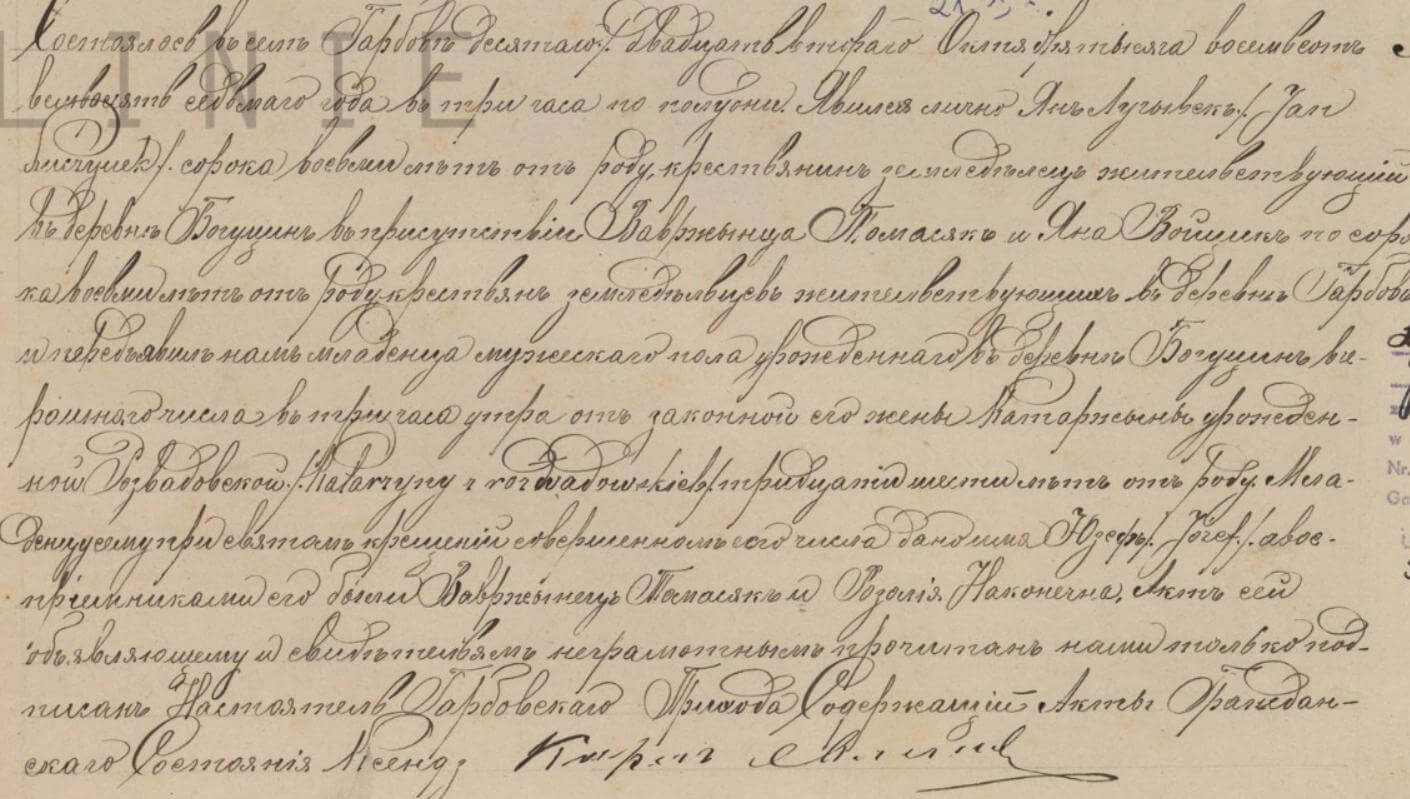 Состоялось въ селѣ Гарбовѣ десятаго /: двадцать втораго Октября тысяча восемьсотъ
седьмаго года въ три часа по полудни. Явился лично Янъ Лучывекъ /: Jan
сорока восьми лѣтъ отъ роду, крестьянинъ земледѣлецъ жительствующій
въ деревнѣ Богуцинъ въ присутствіи Вавржынца Томасякъ и Яна Войцикъ по соро
ка восьми лѣтъ отъ роду крестьянъ земледѣльцевъ жительствующихъ въ деревнѣ Гарбовъ
и передъявилъ намъ младенца мужескаго пола урожденнаго въ деревнѣ Богуцинъ вче-
рашнаго числа въ три часа утра отъ законной его жены Катаржыны урожден-
ной Розвадовской /: Katarzyny z rozwadowskich / тридцати шести лѣтъ отъ роду. Мла-
денцу сему при святомъ крещеніи совершенномъ сего числа дано имя Юзефъ /: Józef /: а вос-
пріемниками его были Вавржынецъ Томасякъ и Розалія Наконечна. Актъ сей
объявляющему и свидѣтелямъ неграмотнымъ прочитанъ нами только под-
писанъ Настоятель Гарбовскаго Прихода Содержащій Акты Граждан-
скаго Состоянія Ксендз
LINIE